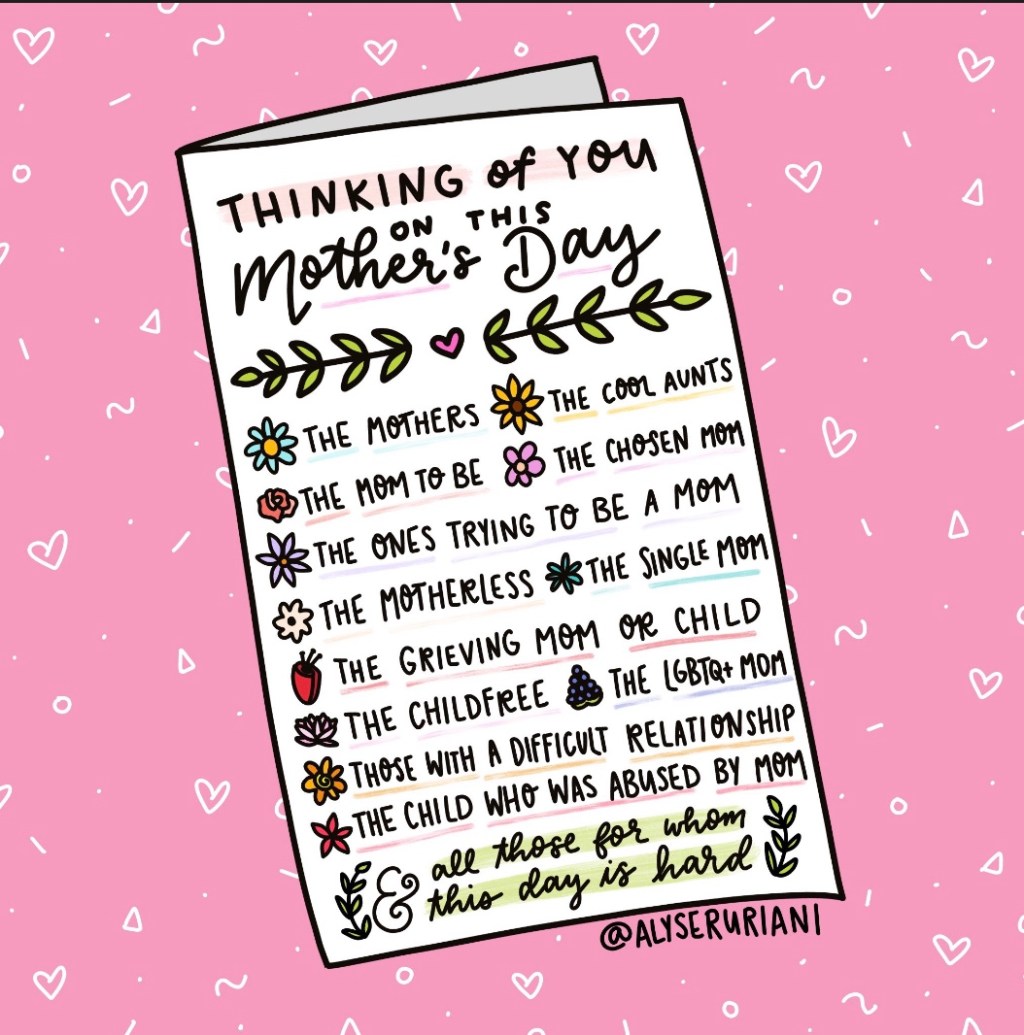 THINKING of YOU
ON THIS
Mother's Day
THE MOTHERS THE COOL AUNTS
THE MOM TO BE THE CHOSEN MOM
THE ONES TRYING TO BE A MOM
THE MOTHERLESS THE SINGLE MOM
THE GRIEVING MOM OR CHILD
THE CHILDFREE THE LGBTQ+ MOM
THOSE WITH A DIFFICULT RELATIONSHIP
THE CHILD WHO WAS ABUSED BY MOM
& all those for whom
this day is hard
@ALYSERURIANI